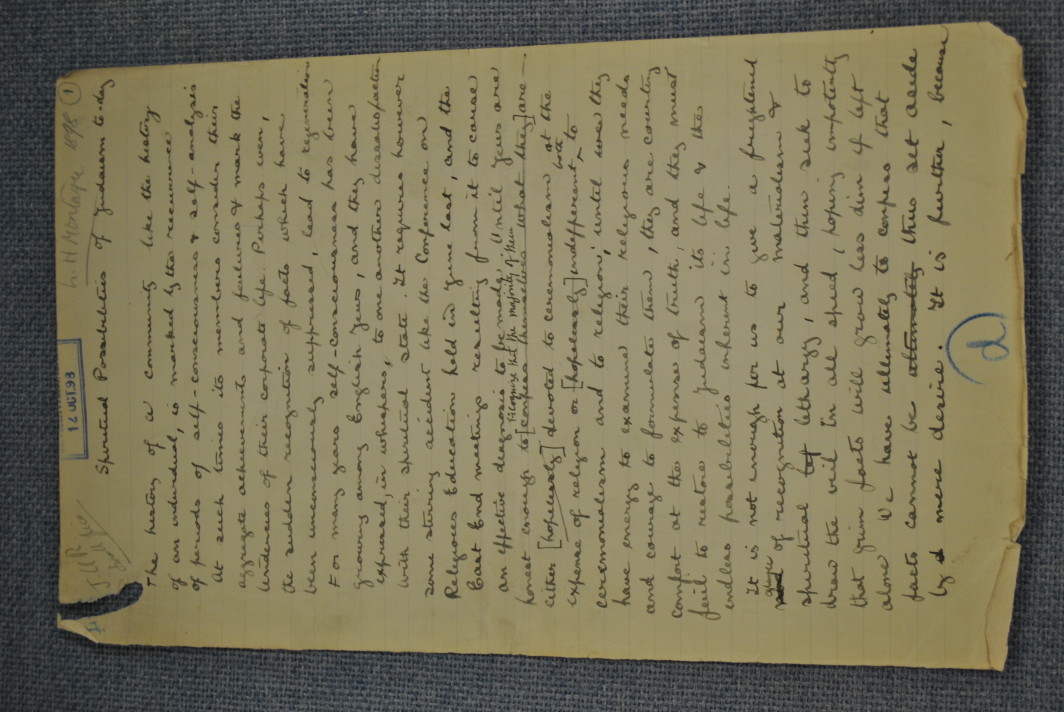 L. H. Montagu 1898 ①
16 OCT. 93
J.Q.R.
Spiritual Possibilities of Judaism to-day
The history of a community like the history
of an individual, is marked by the recurrence
of periods of self-consciousness & self-analysis
At such times its members consider their
aggregate achievements and failures & mark the
tendencies of their corporate life. Perhaps even,
the sudden recognition of facts which have
been unconsciously suppressed, lead to regeneration
For many years self-consciousness has been
growing among English Jews, and they have
expressed, in whispers, to one another dissatisfaction
with their spiritual state. It requires however
some stirring accident like the Conference on
Religious Education held in June last, and the
East End meetings resulting from it to cause
an effective diagnosis to be made. Until Jews are
recognise that the majority of them
honest enough to [confess themselves what they] are —
either [hopelessly] devoted to ceremonialism at the
expense of religion or [hopelessly] indifferent both to
ceremonialism and to religion; until once they
have energy to examine their religious needs
and courage to formulate them, they are courting
comfort at the expense of truth, and they must
fail to restore to Judaism its life & the
endless possibilities inherent in life.
It is not enough for us to give a frightened
glance of recognition at our materialism &
spiritual lethargy, and then seek to
draw the veil in all speed, hoping impotently
that grim facts will grow less dim if left
alone. We have ultimately to confess that
facts cannot be thus set aside
by mere desire. It is further, because
d